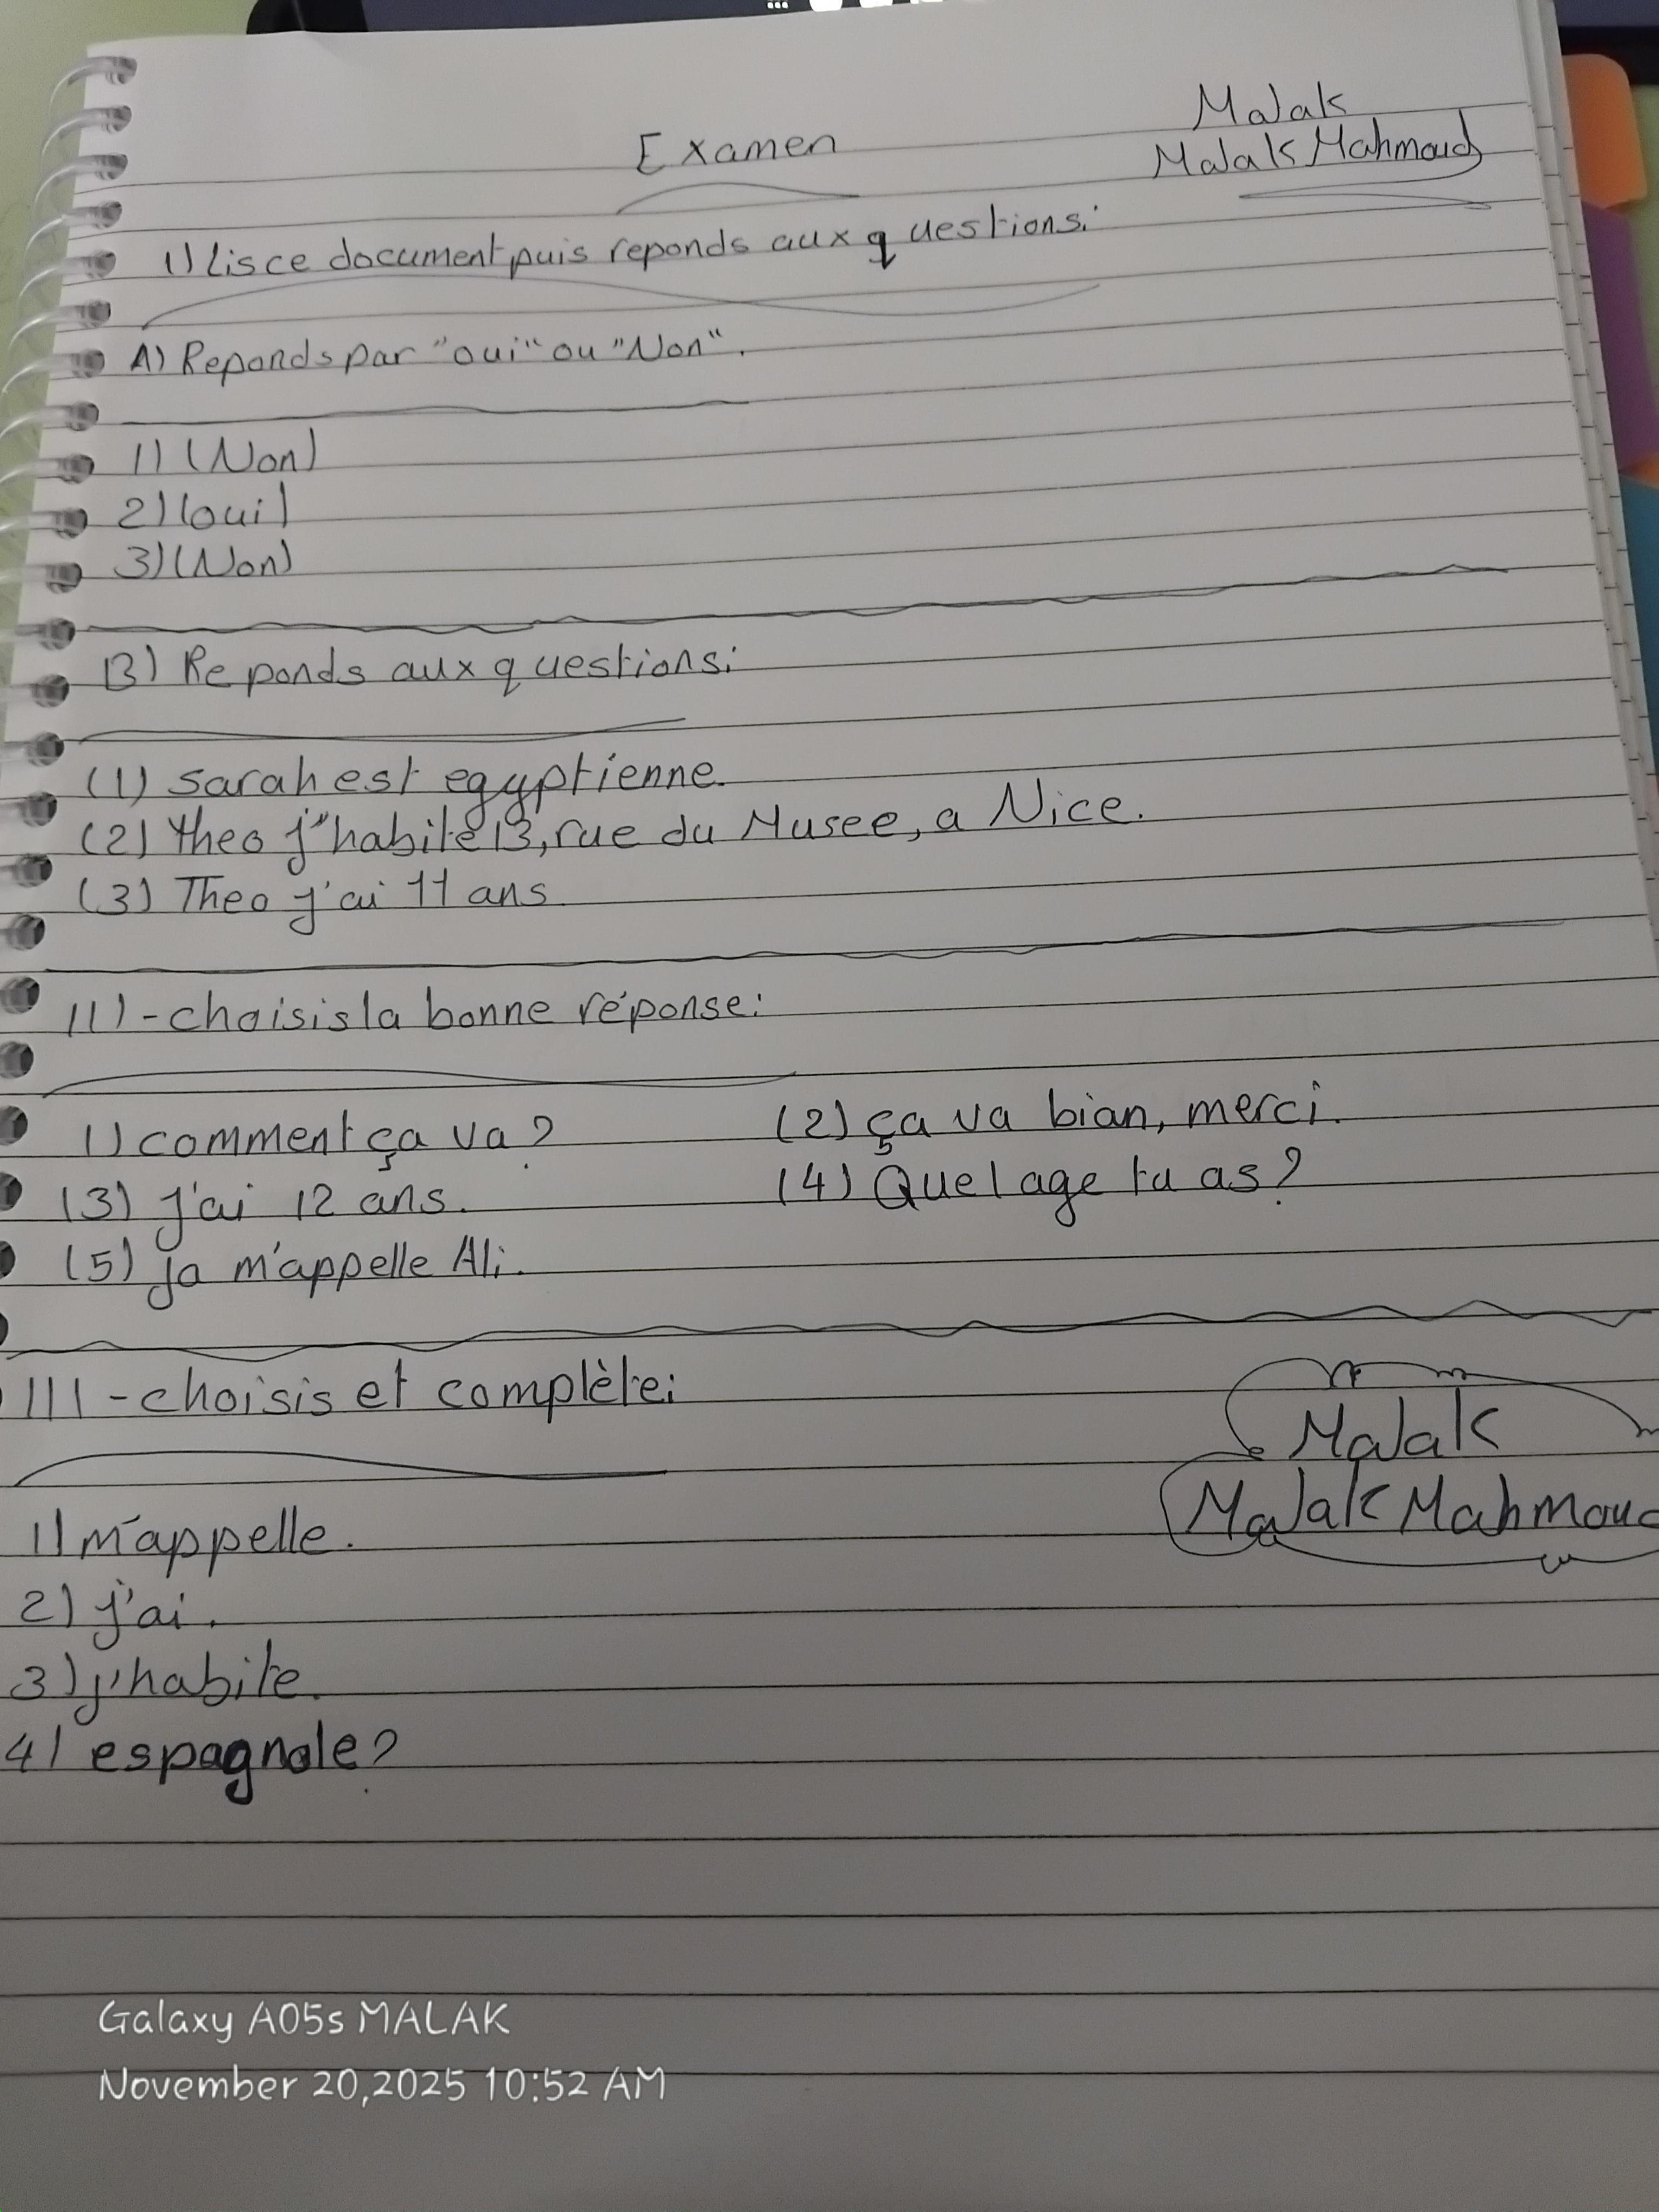 Malak
Examen
Malak Mahmoud
1) Lis ce document puis reponds aux questions:
A) Reponds par "oui" ou "Non".
1) (Non)
2) (oui)
3) (Non)
B) Reponds aux questions:
(1) Sarah est egyptienne.
(2) Theo j'habite 13, rue du Musee, a Nice.
(3) Theo j'ai 11 ans.
II) - choisis la bonne réponse:
1) comment ça va? (2) ça va bian, merci.
(3) j'ai 12 ans. (4) Quel age tu as?
(5) ja m'appelle Ali.
III - choisis et complète:
Malak
Malak Mahmoud
1) m'appelle.
2) j'ai.
3) j'habite.
4) espagnole?
Galaxy A05s MALAK
November 20,2025 10:52 AM